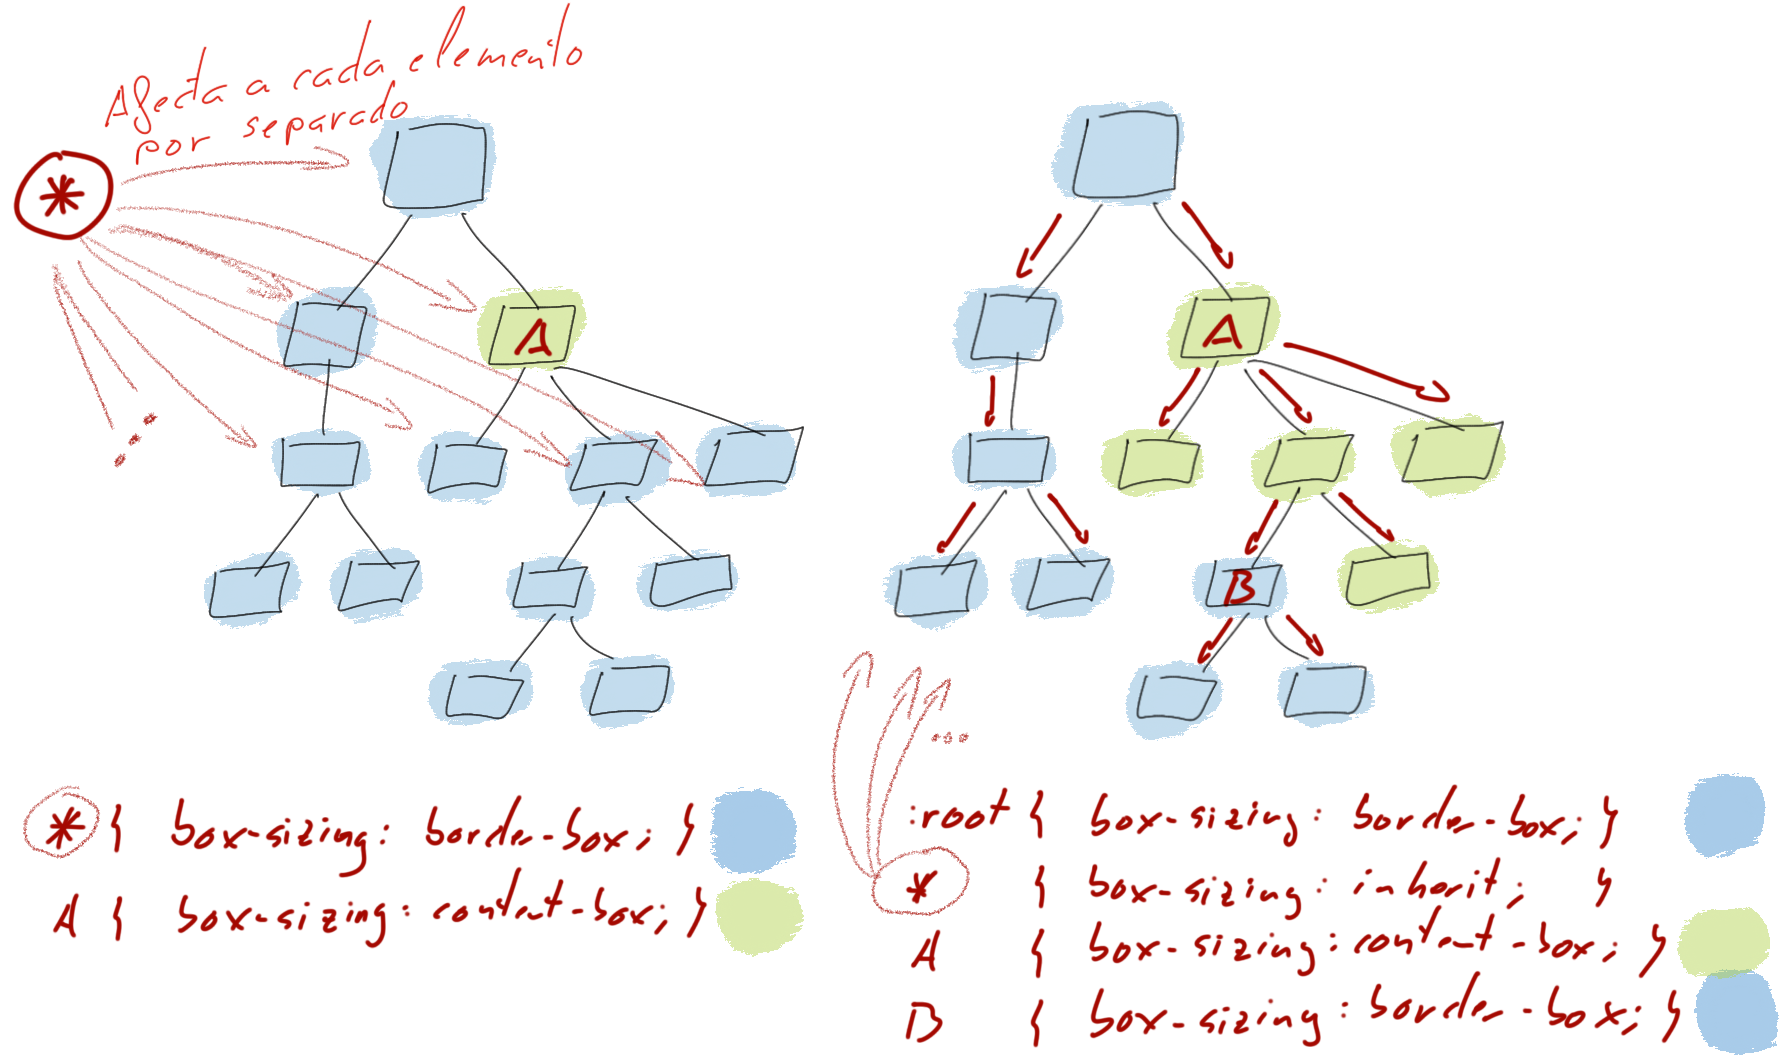 Afecta a cada elemento
por separado
*
A
A
B
...
* { box-sizing: border-box; }
A { box-sizing: content-box; }
:root { box-sizing: border-box; }
* { box-sizing: inherit; }
A { box-sizing: content-box; }
B { box-sizing: border-box; }